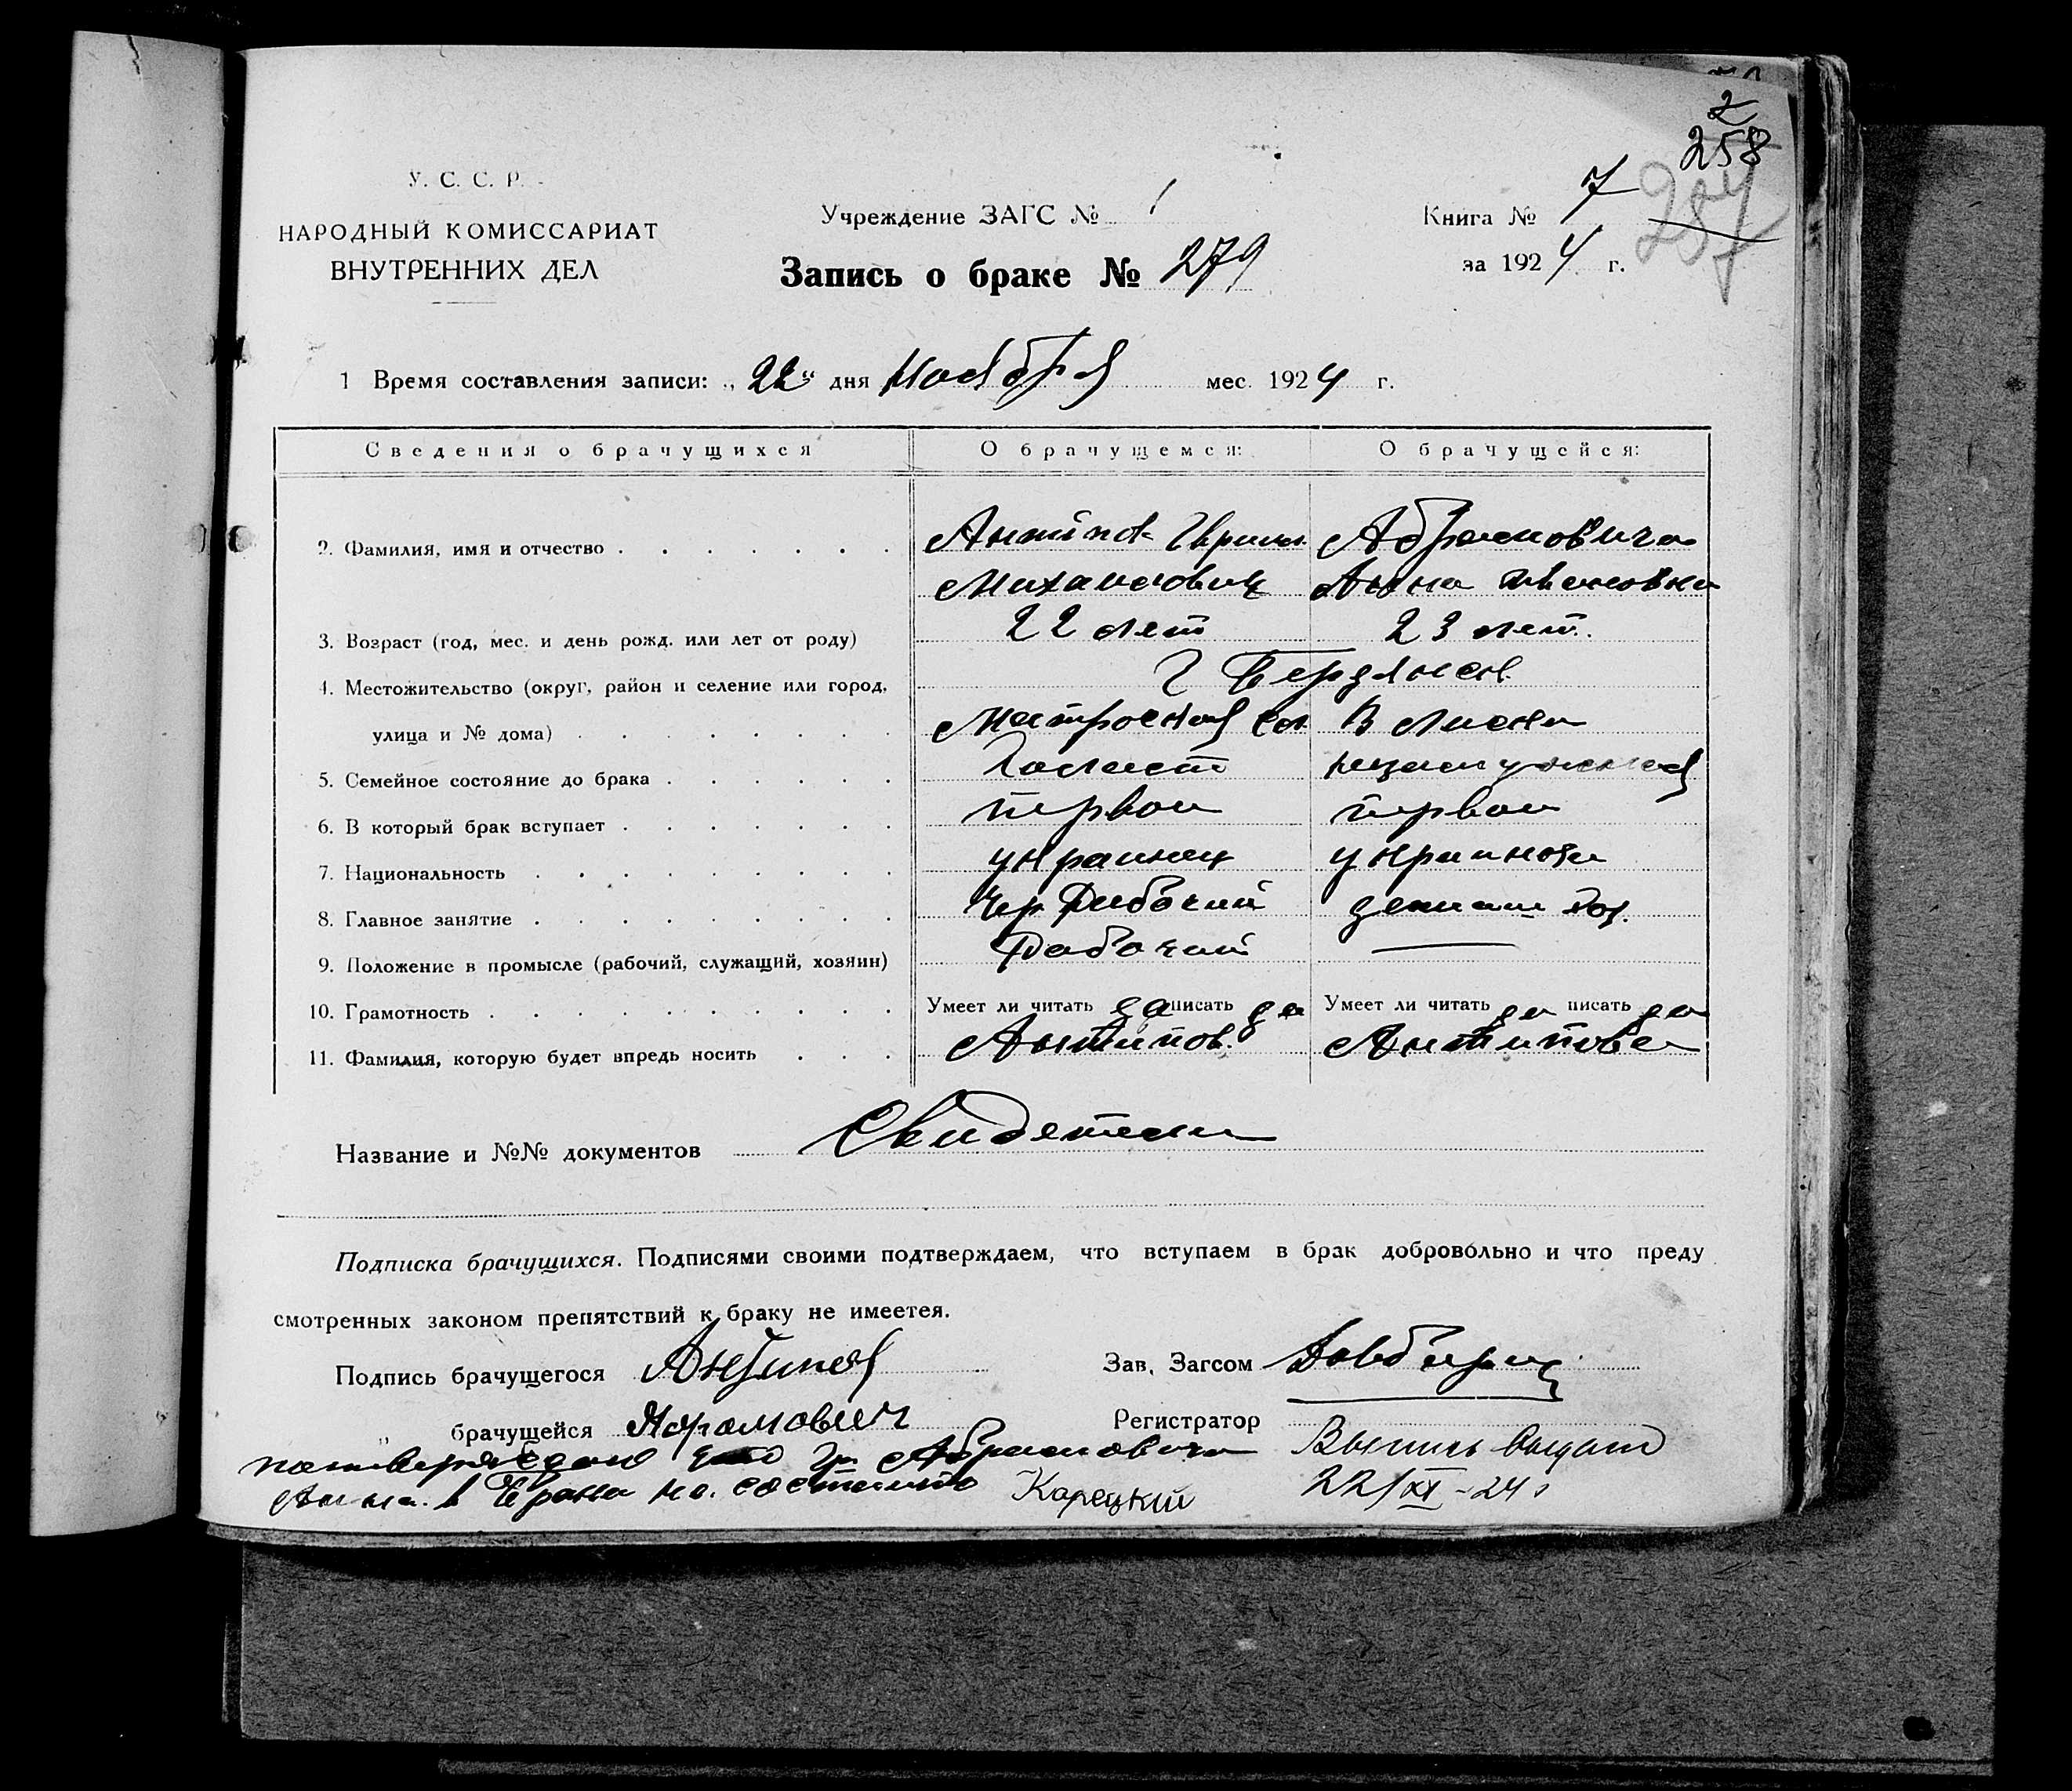 2
258
257
У. С. С. Р.
НАРОДНЫЙ КОМИССАРИАТ
ВНУТРЕННИХ ДЕЛ
Учреждение ЗАГС № 1
Запись о браке № 279
Книга № 7
за 1924 г.
1 Время составления записи: „22" дня Ноября мес. 1924 г.
Сведения о брачущихся О брачущемся: О брачущейся:
2. Фамилия, имя и отчество Антипов Абрамовича
Михайлович Анна Ивановна
3. Возраст (год, мес. и день рожд. или лет от роду) 22 лет 23 лет.
4. Местожительство (округ, район и селение или город, г Бердянск
улица и № дома) Матросская сл. В Лиски
5. Семейное состояние до брака Холост незамужняя
6. В который брак вступает первый первый
7. Национальность украинец украинка
8. Главное занятие Чер Рабочий домаш хоз.
9. Положение в промысле (рабочий, служащий, хозяин) Рабочий —
10. Грамотность Умеет ли читать да писать да Умеет ли читать да писать да
11. Фамилия, которую будет впредь носить Антипов. Антипова
Название и №№ документов Свидетели
Подписка брачущихся. Подписями своими подтверждаем, что вступаем в брак добровольно и что преду
смотренных законом препятствий к браку не имеется.
Подпись брачущегося Антипов Зав. Загсом
„ брачущейся Абрамович Регистратор
что гр Абрамовича Выпись выдана
Анна в браке не состоит Карецкий 22/XI-24